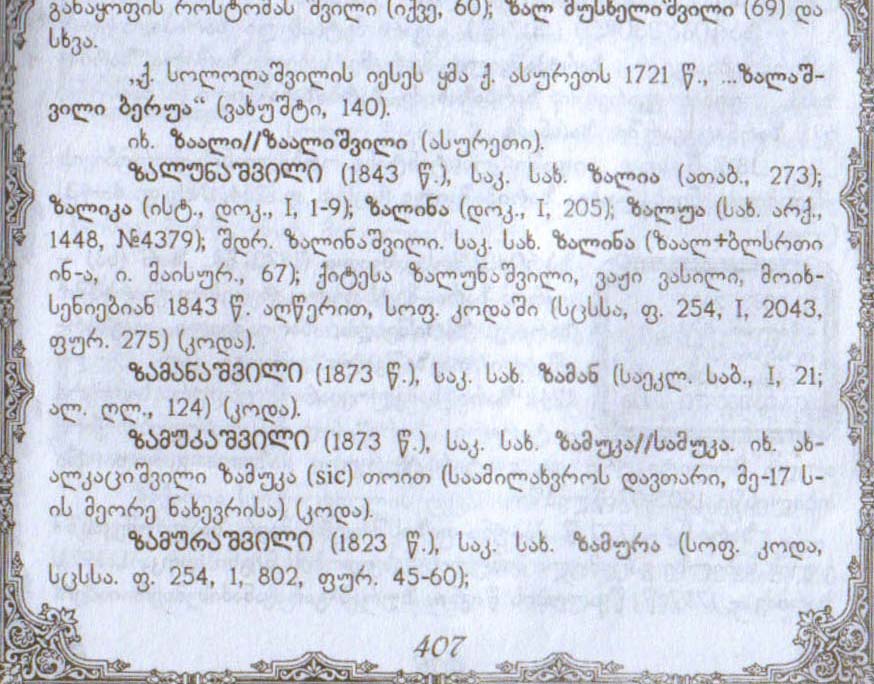 განაყოფის როსტომას შვილი (იქვე, 60); ზალ მუსხელიშვილი (69) და
სხვა.
„ქ. სოლოღაშვილის იესეს ყმა ქ. ასურეთს 1721 წ., ...ზალაშ-
ვილი ბერუა“ (ვახუშტი, 140).
იხ. ზაალი//ზაალიშვილი (ასურეთი).
ზალუნაშვილი (1843 წ.), საკ. სახ. ზალია (ათაბ., 273);
ზალიკა (ისტ., დოკ., I, 1-9); ზალინა (დოკ., I, 205); ზალუა (სახ. არქ.,
1448, №4379); შდრ. ზალინაშვილი. საკ. სახ. ზალინა (ზაალ+ბლსრთი
ინ-ა, ი. მაისურ., 67); ქიტესა ზალუნაშვილი, ვაჟი ვასილი, მოიხ-
სენიებიან 1843 წ. აღწერით, სოფ. კოდაში (სცსსა, ფ. 254, I, 2043,
ფურ. 275) (კოდა).
ზამანაშვილი (1873 წ.), საკ. სახ. ზამან (საეკლ. საბ., I, 21;
ალ. ღლ., 124) (კოდა).
ზამუკაშვილი (1873 წ.), საკ. სახ. ზამუკა//სამუკა. იხ. ახ-
ალკაციშვილი ზამუკა (sic) თოით (საამილახვროს დავთარი, მე-17 ს-
ის მეორე ნახევრისა) (კოდა).
ზამურაშვილი (1823 წ.), საკ. სახ. ზამურა (სოფ. კოდა,
სცსსა. ფ. 254, 1, 802, ფურ. 45-60);
407